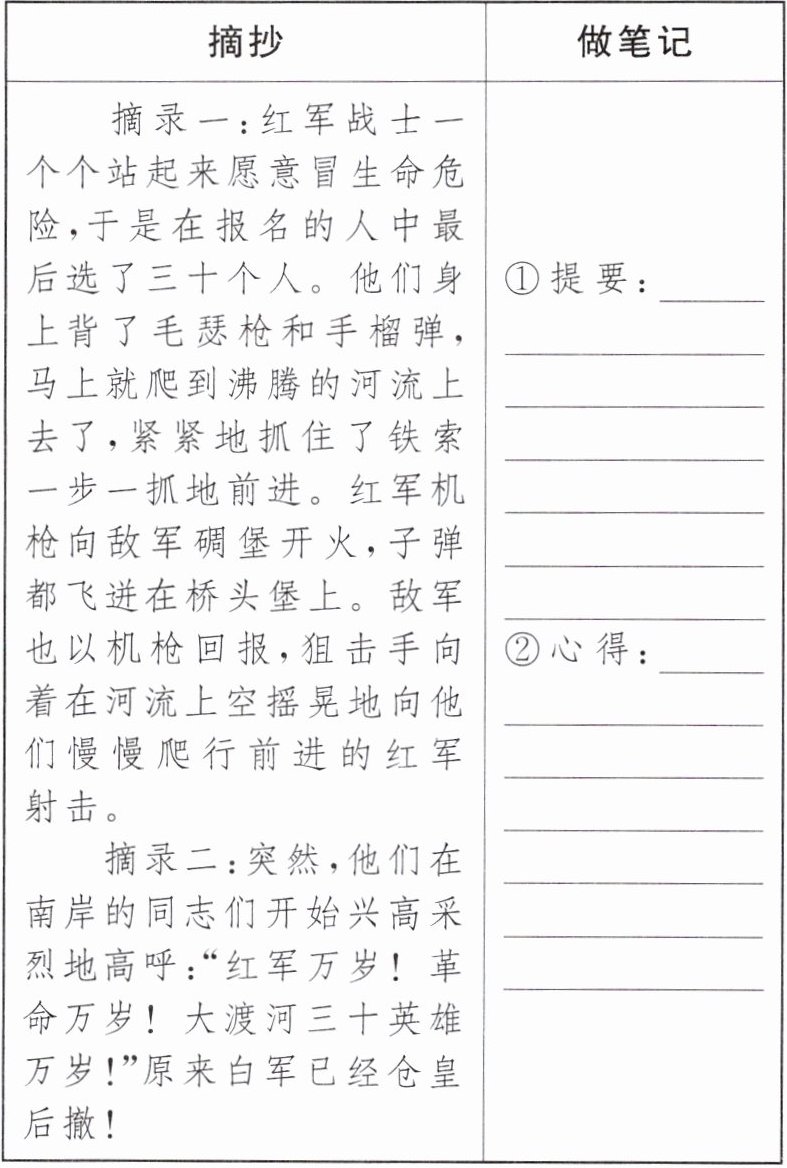 摘抄
做笔记
摘录一：红军战士一
个个站起来愿意冒生命危
险，于是在报名的人中最
后选了三十个人。他们身
上背了毛瑟枪和手榴弹，
马上就爬到沸腾的河流上
去了，紧紧地抓住了铁索
一步一抓地前进。红军机
枪向敌军碉堡开火，子弹
都飞迸在桥头堡上。敌军
也以机枪回报，狙击手向
着在河流上空摇晃地向他
们慢慢爬行前进的红军
射击。
摘录二：突然，他们在
南岸的同志们开始兴高采
烈地高呼：“红军万岁！革
命万岁！大渡河三十英雄
万岁！”原来白军已经仓皇
后撤！
①提要：
②心得：